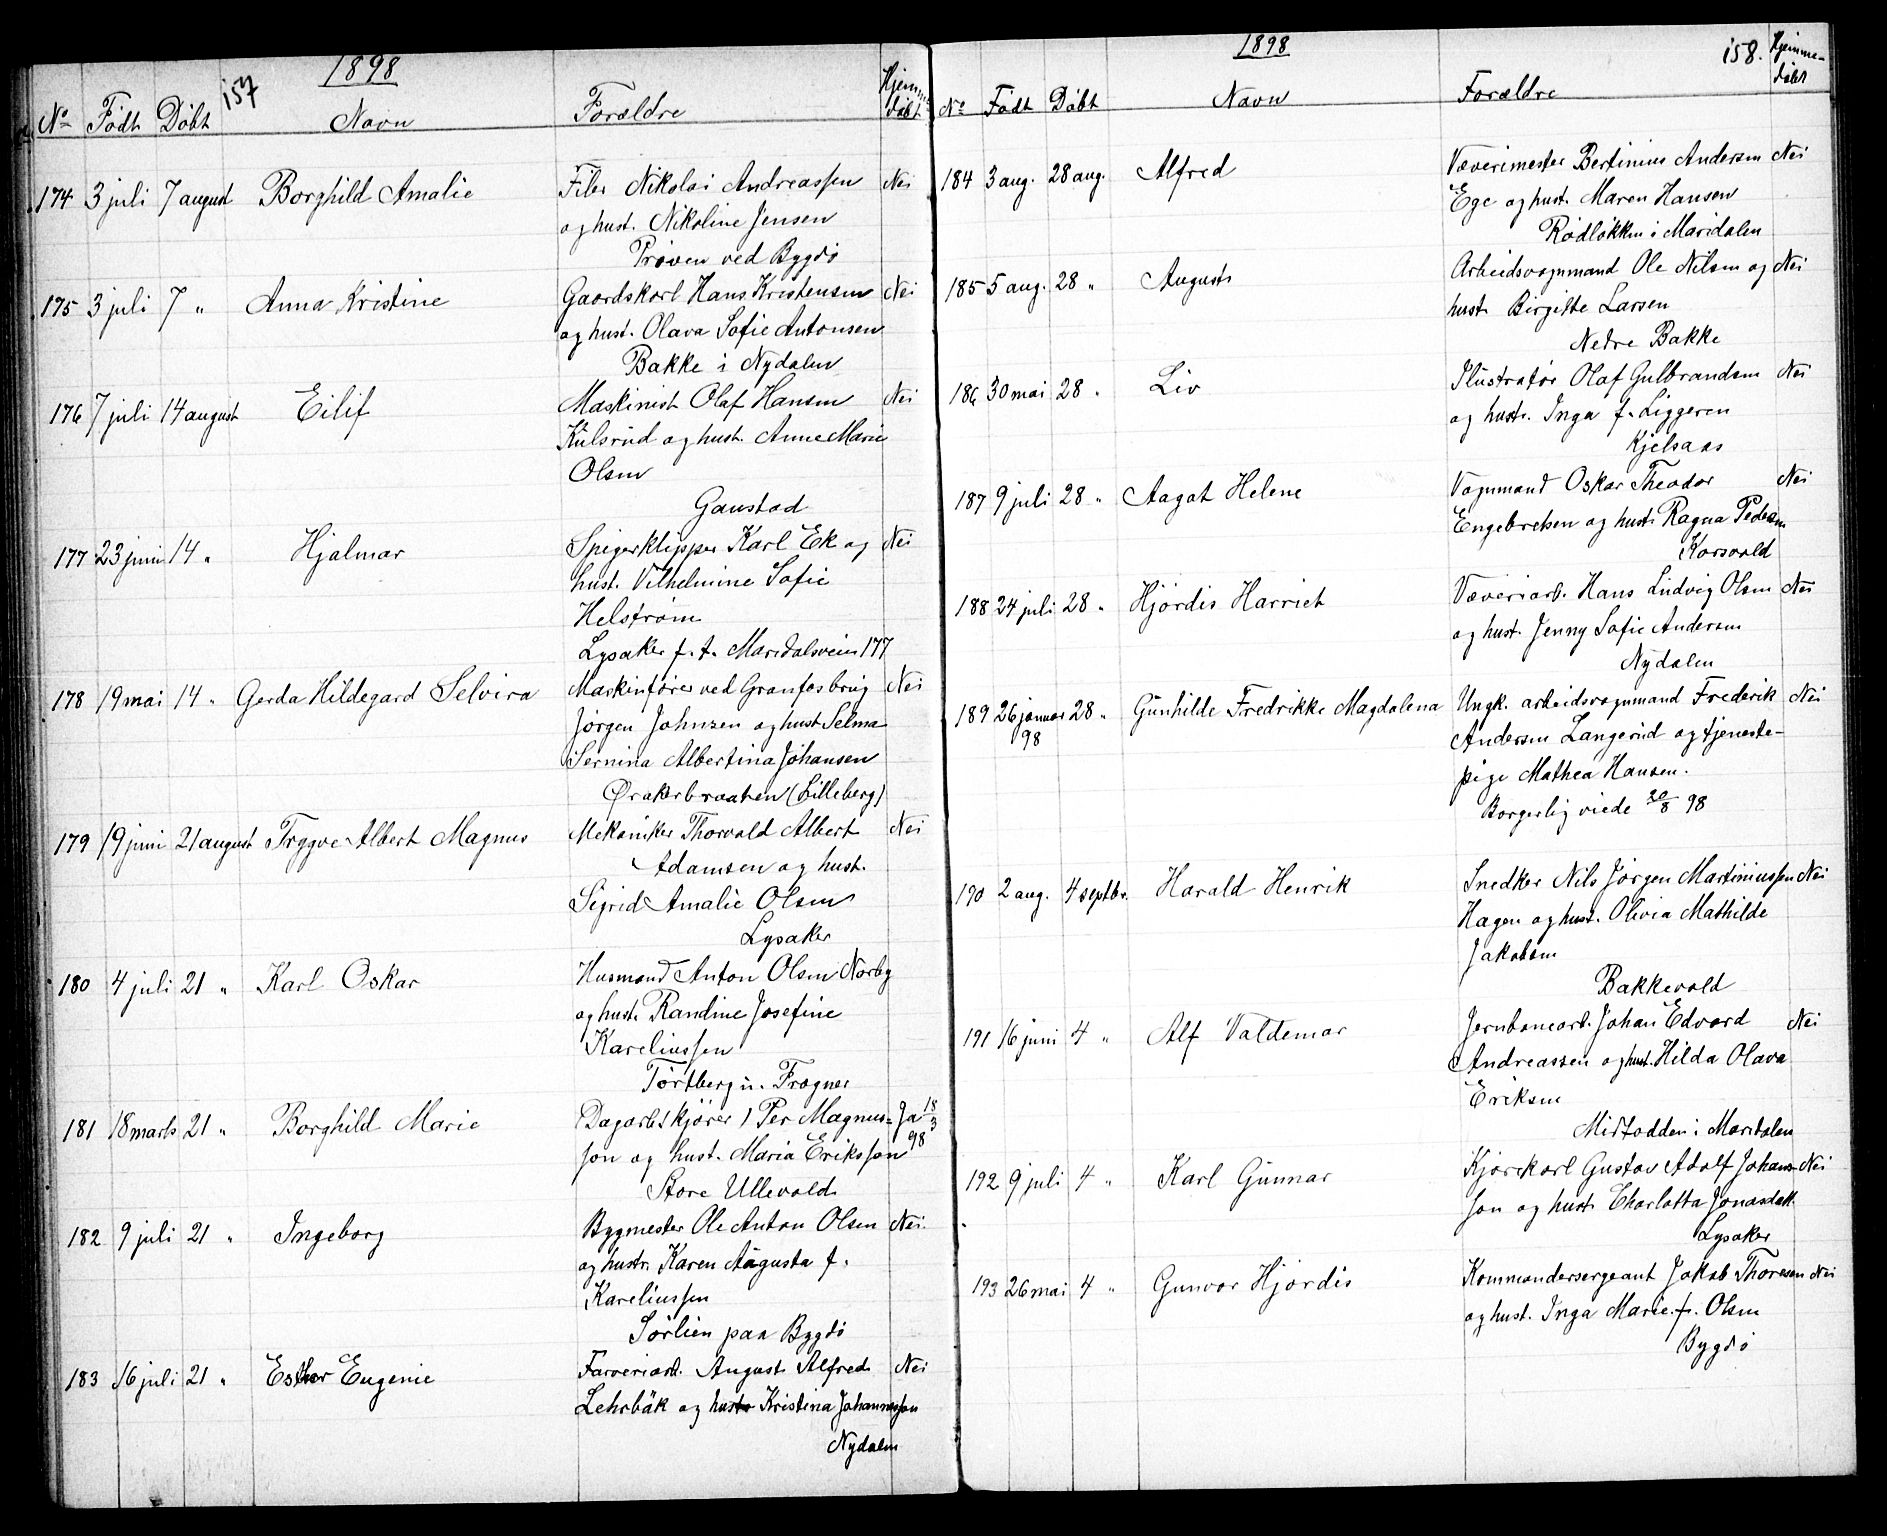 1898
157
No Födt Döbt Navn Forældre Hjemme-
döbt
174 3 juli 7 august Borghild Amalie Filer Nikolai Andreassen Nei
og hust. Nikoline Jensen
Pröven ved Bygdö
175 3 juli 7 " Anna Kristine Gaardskarl Hans Kristensen Nei
og hust. Olava Sofie Antonsen
Bakke i Nydalen
176 7 juli 14 august Eilif Maskinist Olaf Hansen Nei
Kulsrud og hust. Anne Marie
Olsen
Gaustad
177 23 juni 14 " Hjalmar Spigerklipper Karl Ek og Nei
hust. Vilhelmine Sofie
Helström
Lysaker f. t. Maridalsveien 177
178 19 mai 14 " Gerda Hildegard Selvira Maskinförer ved Granfosbrug Nei
Jörgen Johnsen og hust Selma
Sernina Albertina Johansen
Örakerbraaten (Lilleberg)
179 19 juni 21 august Trygve Albert Magnus Mekaniker Thorvald Albert Nei
Adamsen og hust.
Sigrid Amalie Olsen
Lysaker
180 4 juli 21 " Karl Oskar Husmand Anton Olsen Norby
og hust. Randine Josefine
Kareliussen
Törtberg u. Frogner
181 18 marts 21 " Borghild Marie Dagarb. (kjörer) Per Magnus= Ja 18/3
98
son og hust. Maria Eriksson
Store Ullevold
182 9 juli 21 " Ingeborg Bygmester Ole Anton Olsen Nei.
og hustr. Karen Augusta f.
Kareliussen
Sörlien paa Bygdö
183 16 juli 21 " Esther Eugenie Farveriarb. August Alfred Nei
Lehrbäk og hustr Kristina Johannesson
Nydalen
1898
158.
No Födt Döbt Navn Forældre Hjemme-
döbt
184 3 aug. 28 aug. Alfred Væverimester Bertinius Andersen Nei
Ege og hust. Maren Hansen
Rödlökken i Maridalen
185 5 aug. 28 " August Arbeidsvognmand Ole Nilsen og Nei
hust. Birgitte Larsen
Nedre Bakke
186 30 mai 28 " Liv Ilustratör Olaf Gulbrandsen Nei
og hustr. Inga f. Liggeren
Kjelsaas
187 9 juli 28 " Aagot Helene Vognmand Oskar Theodor Nei
Engebretsen og hust. Ragna Pedersen
Korsvold
188 24 juli 28 " Hjördis Harriet Væveriarb. Hans Ludvig Olsen Nei
og hust. Jenny Sofie Andersen
Nydalen
189 26 januar 28 " Gunhilde Fredrikke Magdalena Ungk. arbeidsvognmand Frederik Nei
98
Andersen Langerud og tjeneste-
pige Mathea Hansen.
Borgerlig viede 20/8 98
190 2 aug. 4 septbr. Harald Henrik Snedker Nils Jörgen Martiniussen Nei
Hagen og hust. Olivia Mathilde
Jakobsen
Bakkevold
191 16 juni 4 " Alf Valdemar Jernbanearb. Johan Edvard Nei
Andreassen og hust. Hilda Olava
Eriksen
Midtodden i Maridalen
192 9 juli 4 " Karl Gunnar Kjörekarl Gustav Adolf Johans- Nei
son og hust. Charlotta Jonasdatt.
Lysaker
193 26 mai 4 " Gunvor Hjördis Kommandersergeant Jakob Thoresen Nei
og hust. Inga Marie f. Olsen
Bygdö